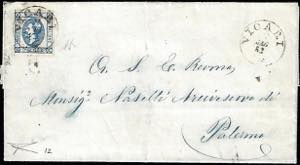 VICARI
VICARI
A S. E. Revma
Monsigr Naselli Arcivescovo di
Palermo
12